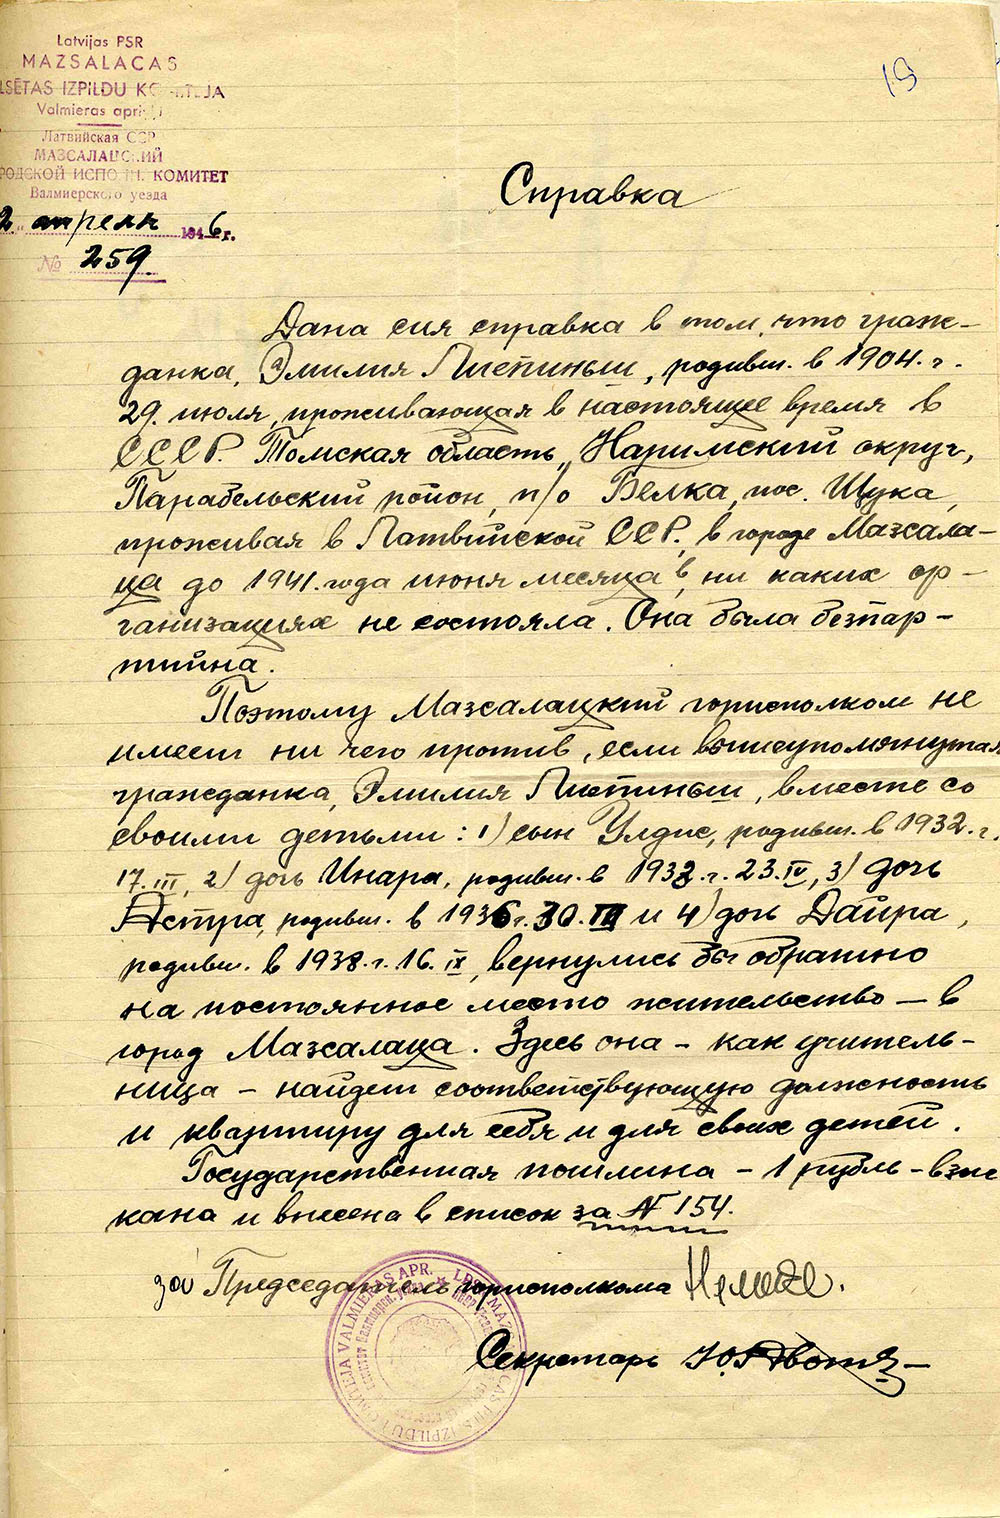 Latvijas PSR
MAZSALACAS
LSĒTAS IZPILDU KOMITEJA
Valmieras apriņķī
Латвийская ССР
МАЗСАЛАЦСКИЙ
РОДСКОЙ ИСПОЛН. КОМИТЕТ
Валмиерского уезда
2. апрель 1946 г.
№ 259.
19
Справка
Дана сия справка в том, что граж-
данка, Эмилия Лиепиньш, родивш. в 1904. г.
29. июля, проживающая в настоящее время в
СССР. Томская область, Наримский округ,
Парабельский район, п/о Белка, пос. Щука,
проживая в Латвийской ССР., в городе Мазсала-
ца до 1941. года июня месяца в ни каких ор-
ганизациях не состояла. Она была безпар-
тийна.
Поэтому Мазсалацкий горисполком не
имеет ни чего против, если вышеупомянутая
гражданка, Эмилия Лиепиньш, вместе со
своими детьми: 1) сын Улдис, родивш. в 1932. г.
17. III, 2) дочь Инара, родивш. в 1933. г. 23. IV, 3) дочь
Астра, родивш. в 1936 г. 30. III и 4) дочь Дайра,
родивш. в 1938. г. 16. IX, вернулись бы обратно
на постоянное место жительство — в
город Мазсалаца. Здесь она - как учитель-
ница - найдет соответствующую должность
и квартиру для себя и для своих детей.
Государственная пошлина - 1 рубль - взыс
кана и внесена в список за N 154.
зав Председатель горисполкома
LPSR MAZSALACAS PILS. IZPILDU KOMITEJA VALMIERAS APR.
Секретарь